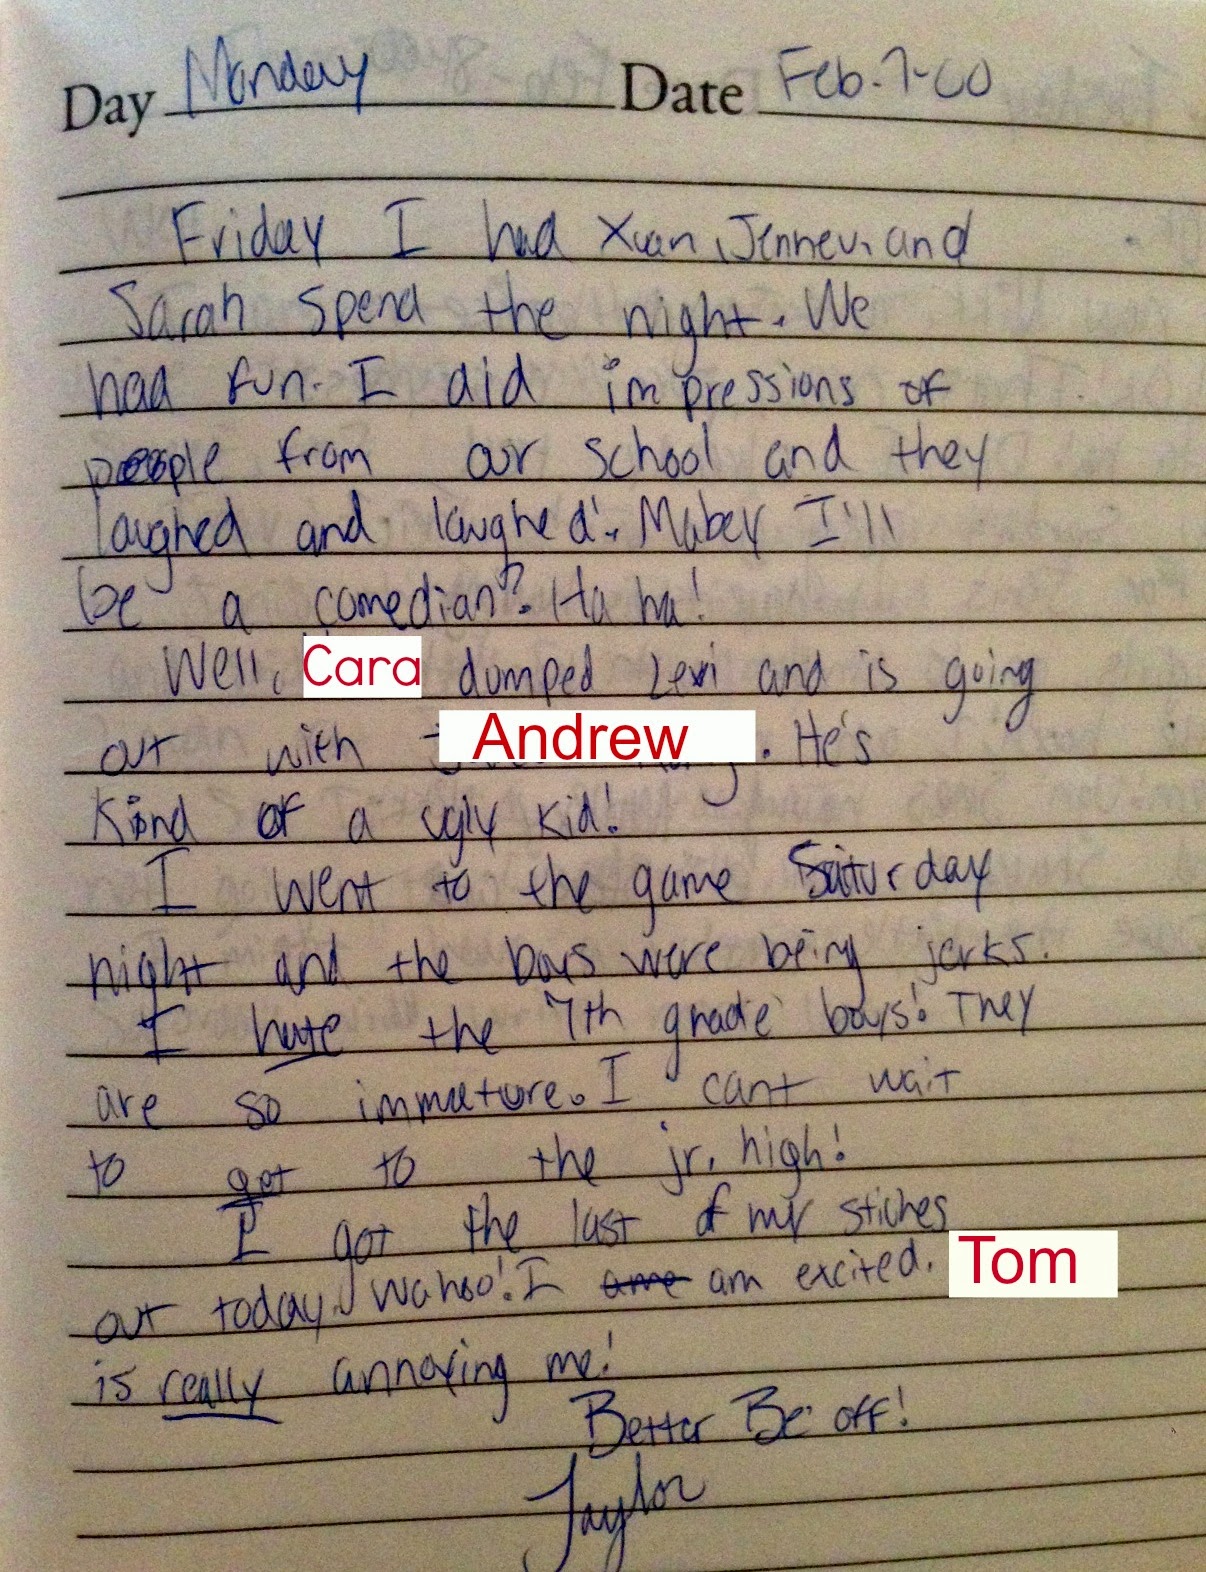 Day Monday Date Feb. 7-00
Friday I had Xuan, Jenney, and
Sarah spend the night. We
had fun. I did impressions of
people from our school and they
laughed and laughed! Mabey I'll
be a comedian? Ha ha!
Well, Cara dumped Levi and is going
out with Andrew. He's
kind of a ugly kid!
I went to the game Saturday
night and the boys were being jerks.
I hate the 7th grade boys! They
are so immature. I cant wait
to get to the jr. high!
I got the last of my stiches
out today! Wahoo! I am excited. Tom
is really annoying me!
Better Be off!
Taylor